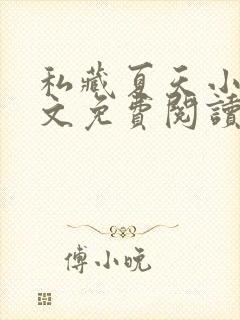 私藏夏天小
文免費閱讀
傅小晚